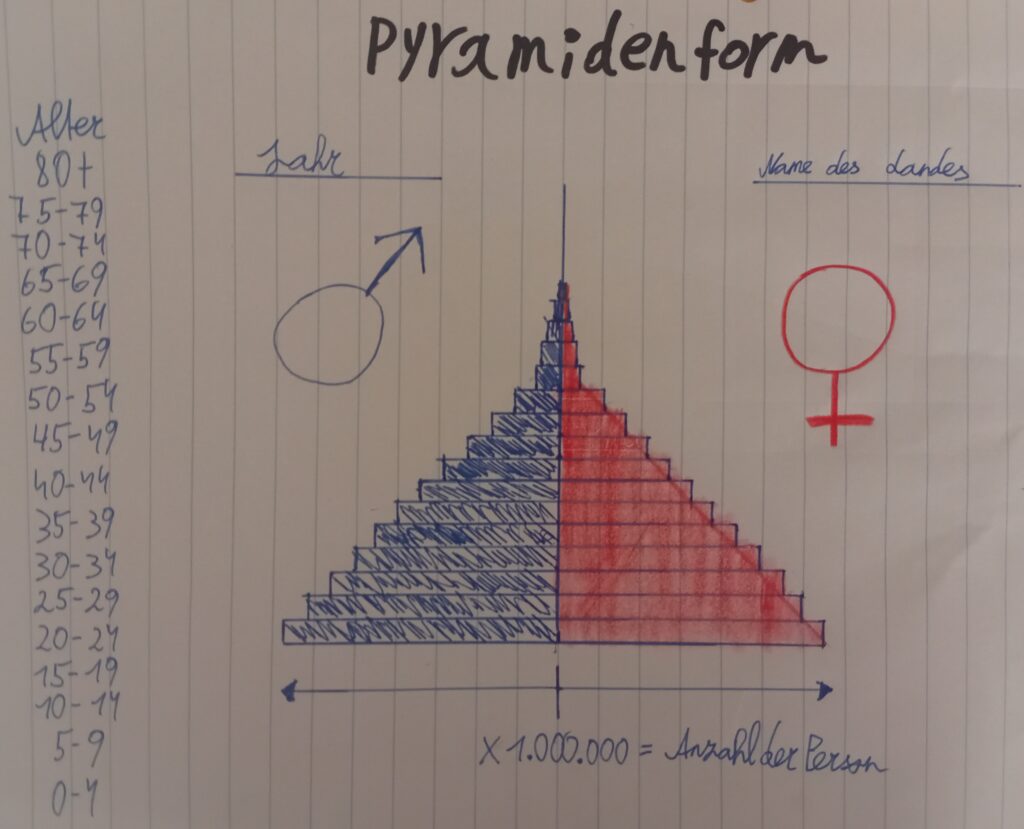 Pyramidenform
Alter
80+
75-79
70-74
65-69
60-64
55-59
50-54
45-49
40-44
35-39
30-34
25-29
20-24
15-19
10-14
5-9
0-4
Jahr
Name des Landes
X 1.000.000 = Anzahl der Person